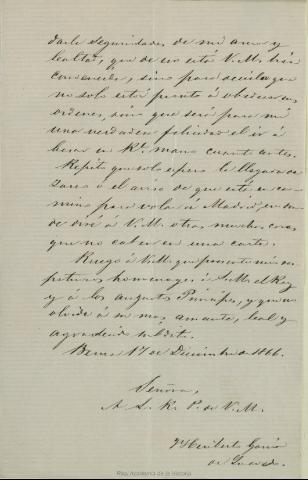 darle seguridades de mi amor y
lealtad, que de eso está V. M. bien
convencida, sino para decirla que
no solo estoy pronto á obedecer sus
ordenes, sino que será para mi
una verdadera felicidad el ir á
besar su Rl. mano cuanto antes.
Repito que solo espero la llegada de
ó el aviso de que esté en ca-
mino para volar á Madrid, en don-
de diré á V. M. otras muchas cosas
que no caben en una carta.
Ruego á V. M. que presente mis res-
petuosos homenages á S. M. el Rey
y á los augustos Principes, y que no
olvide á su mas amante, leal y
agradecido súbdito.
Berna 17 de Diciembre de 1866.
Señora,
A L. R. P. de V. M.
Heriberto Garcia
de Quevedo
Real Academia de la Historia